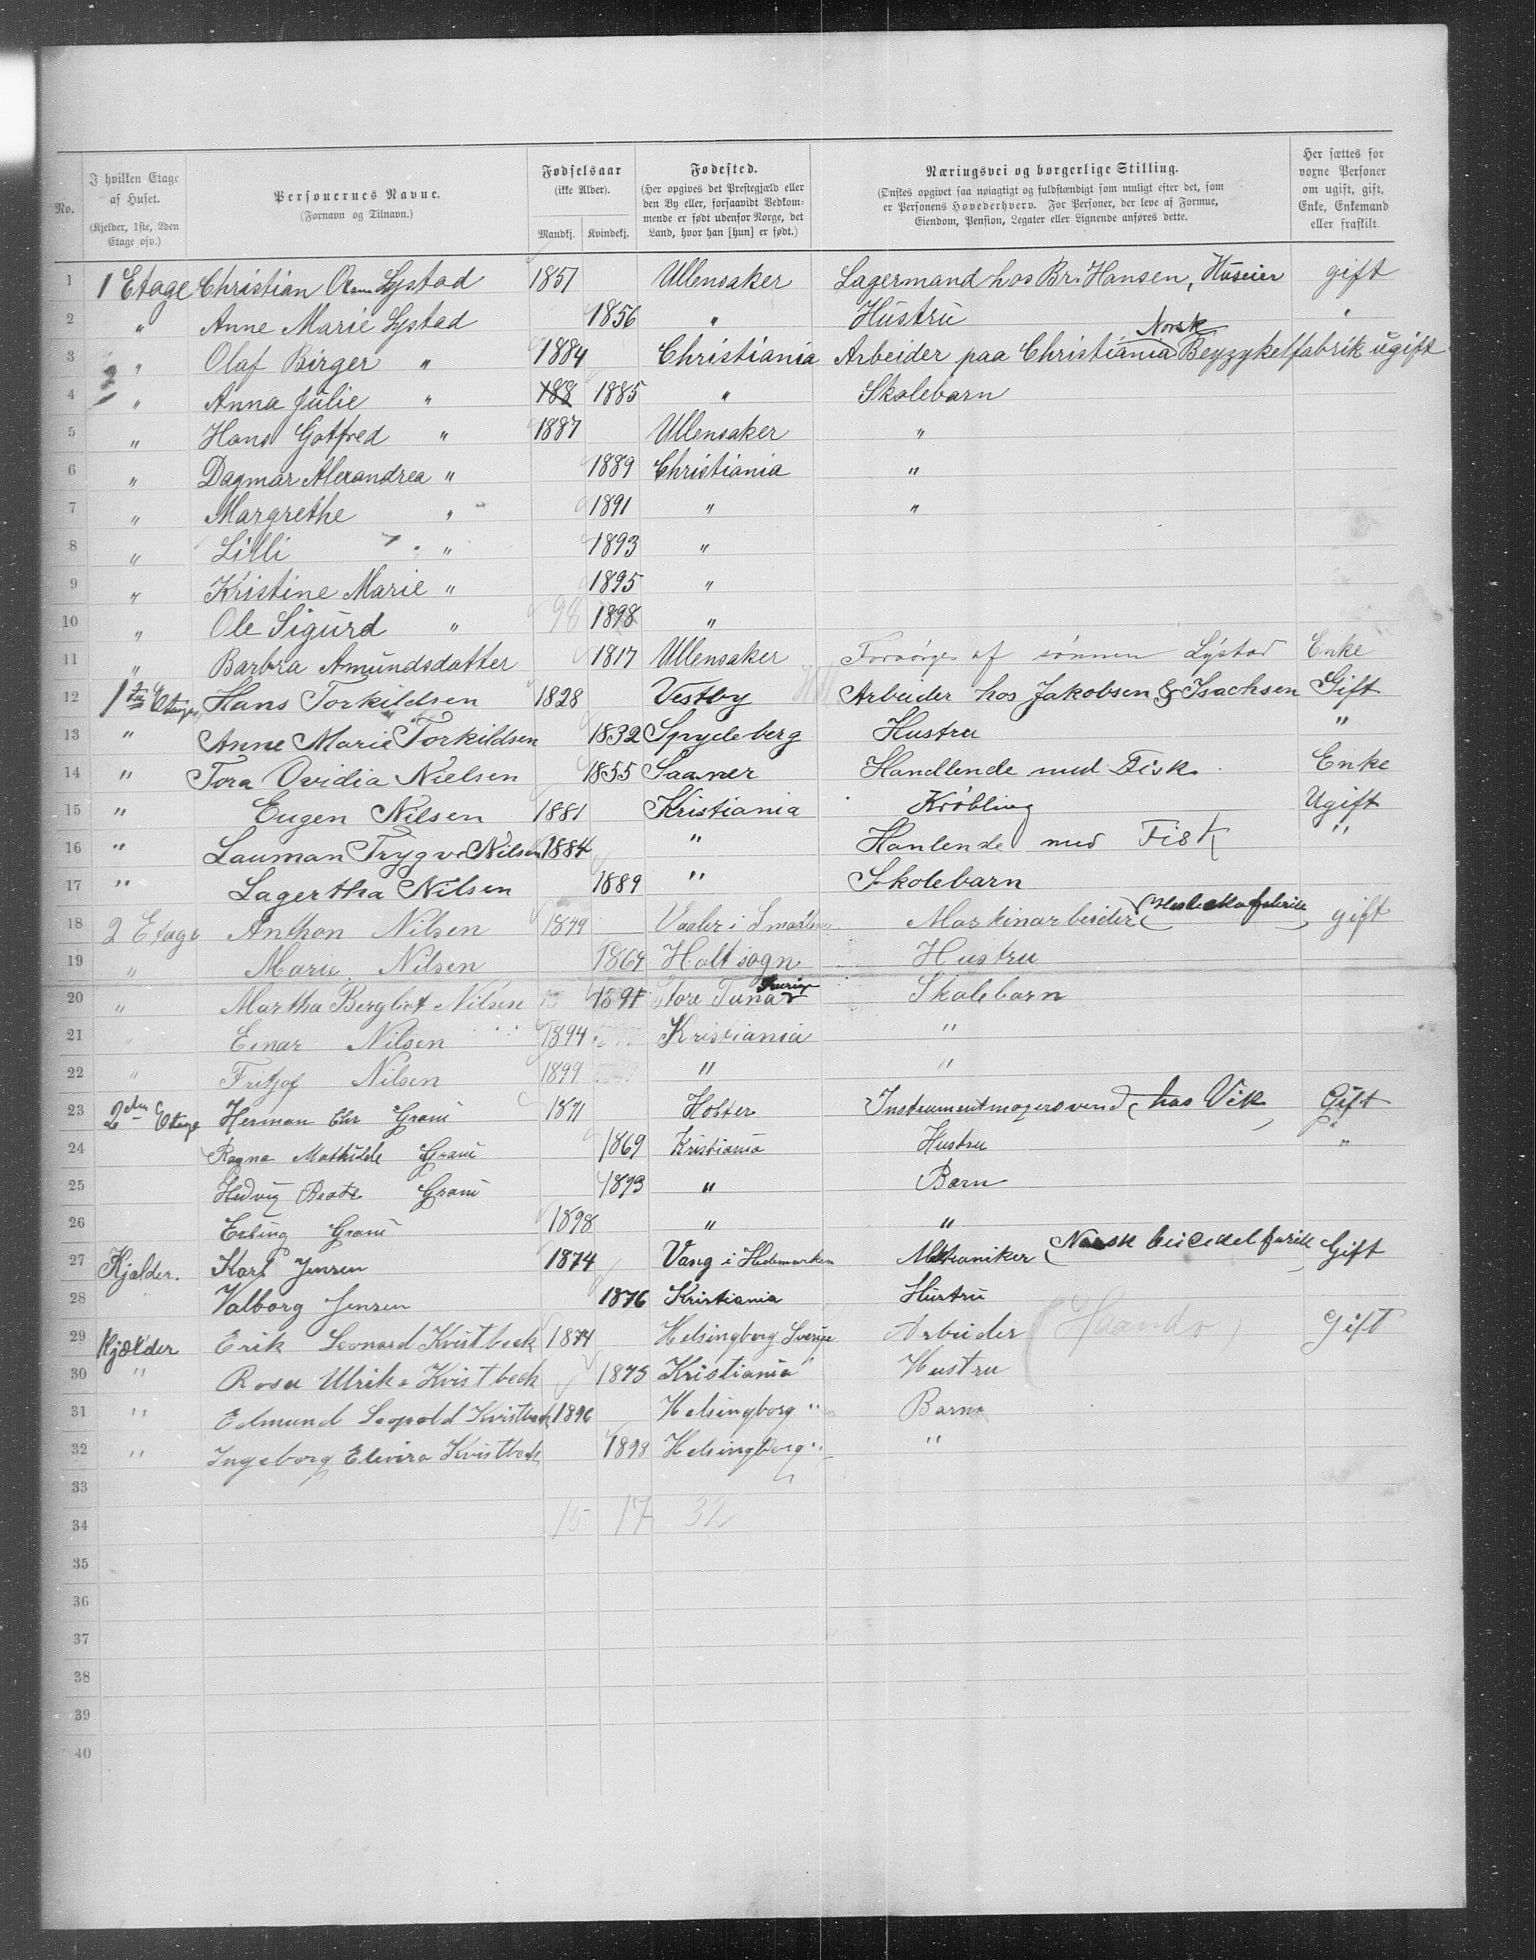 No. I hvilken Etage af Huset. (Kjelder, 1ste, 2den Etage osv.) Personernes Navne. (Fornavn og Tilnavn.) Fødselsaar (ikke Alder). Mandkj. Kvindekj. Fødested. (Her opgives det Prestegjæld eller den By eller, forsaavidt Vedkommende er født udenfor Norge, det Land, hvor han [hun] er født.) Næringsvei og borgerlige Stilling. (Ønskes opgivet saa nøiagtigt og fuldstændigt som muligt efter det, som er Personens Hovederhverv. For Personer, der leve af Formue, Eiendom, Pension, Legater eller Lignende anføres dette. Her sættes for voxne Personer om ugift, gift, Enke, Enkemand eller fraskilt.
1 1 Etage Christian Olsen Lystad 1851 Ullensaker Lagermand hos Br. Hansen, Huseier gift
2 " Anne Marie Lystad 1856 " Hustru "
3 " Olaf Birger " 1884 Christiania Arbeider paa Christiania Norsk Beyzykelfabrik ugift
4 " Anna Julie " 188 1885 " Skolebarn
5 " Hans Gotfred " 1887 Ullensaker "
6 " Dagmar Alexandrea " 1889 Christiania "
7 " Margrethe " 1891 " "
8 " Lilli " 1893 "
9 " Kristine Marie " 1895 "
10 " Ole Sigurd " 98 1898 "
11 " Barbra Amundsdatter 1817 Ullensaker Forsørges af sønnen Lystad Enke
12 1ste Etage Hans Torkildsen 1828 Vestby Arbeider hos Jakobsen & Isachsen Gift
13 " Anne Marie Torkildsen 1832 Spydeberg Hustru "
14 " Tora Ovidia Nielsen 1855 Saaner Handlende med Fisk Enke
15 " Eugen Nilsen 1881 Kristiania Krøbling Ugift
16 " Lauman Trygve Nilsen 1884 " Hanlende med Fisk "
17 " Lagertha Nilsen 1889 " Skolebarn
18 2 Etage Anthon Nilsen Vaaler i Maskinarbeider gift
19 " Marie Nilsen 1869 Holt sogn Hustru
20 " Martha Bergliot Nilsen 1891 Store Tuna Sverige Skolebarn
21 " Einar Nilsen 1894 Kristiania "
22 " Fritjof Nilsen 1899 " "
23 2den Etage Herman Chr Grani 1871 Hobter Instrumentmagersvend (hos Vik) Gift
24 Ragna Mathilde Grani 1869 Kristiania Hustru "
25 Hedvig Beate Grani 1893 " Barn
26 Erling Grani 1898 " "
27 Kjælder. Karl Jensen 1874 Vang i Hedemarken Mekaniker (Norsk Gift
28 Valborg Jensen 1876 Kristiania Hustru
29 Kjælder Erik Leonard Kvistbeck 1874 Helsingborg Sverige Arbeider Gift
30 " Rosa Ulrike Kvistbeck 1875 Kristiania " Hustru
31 " Edmund Leopold Kvistbeck 1896 Helsingborg " Barn
32 " Ingeborg Elevira Kvistbeck 1898 Helsingborg " "
33
34 15 17 32
35
36
37
38
39
40